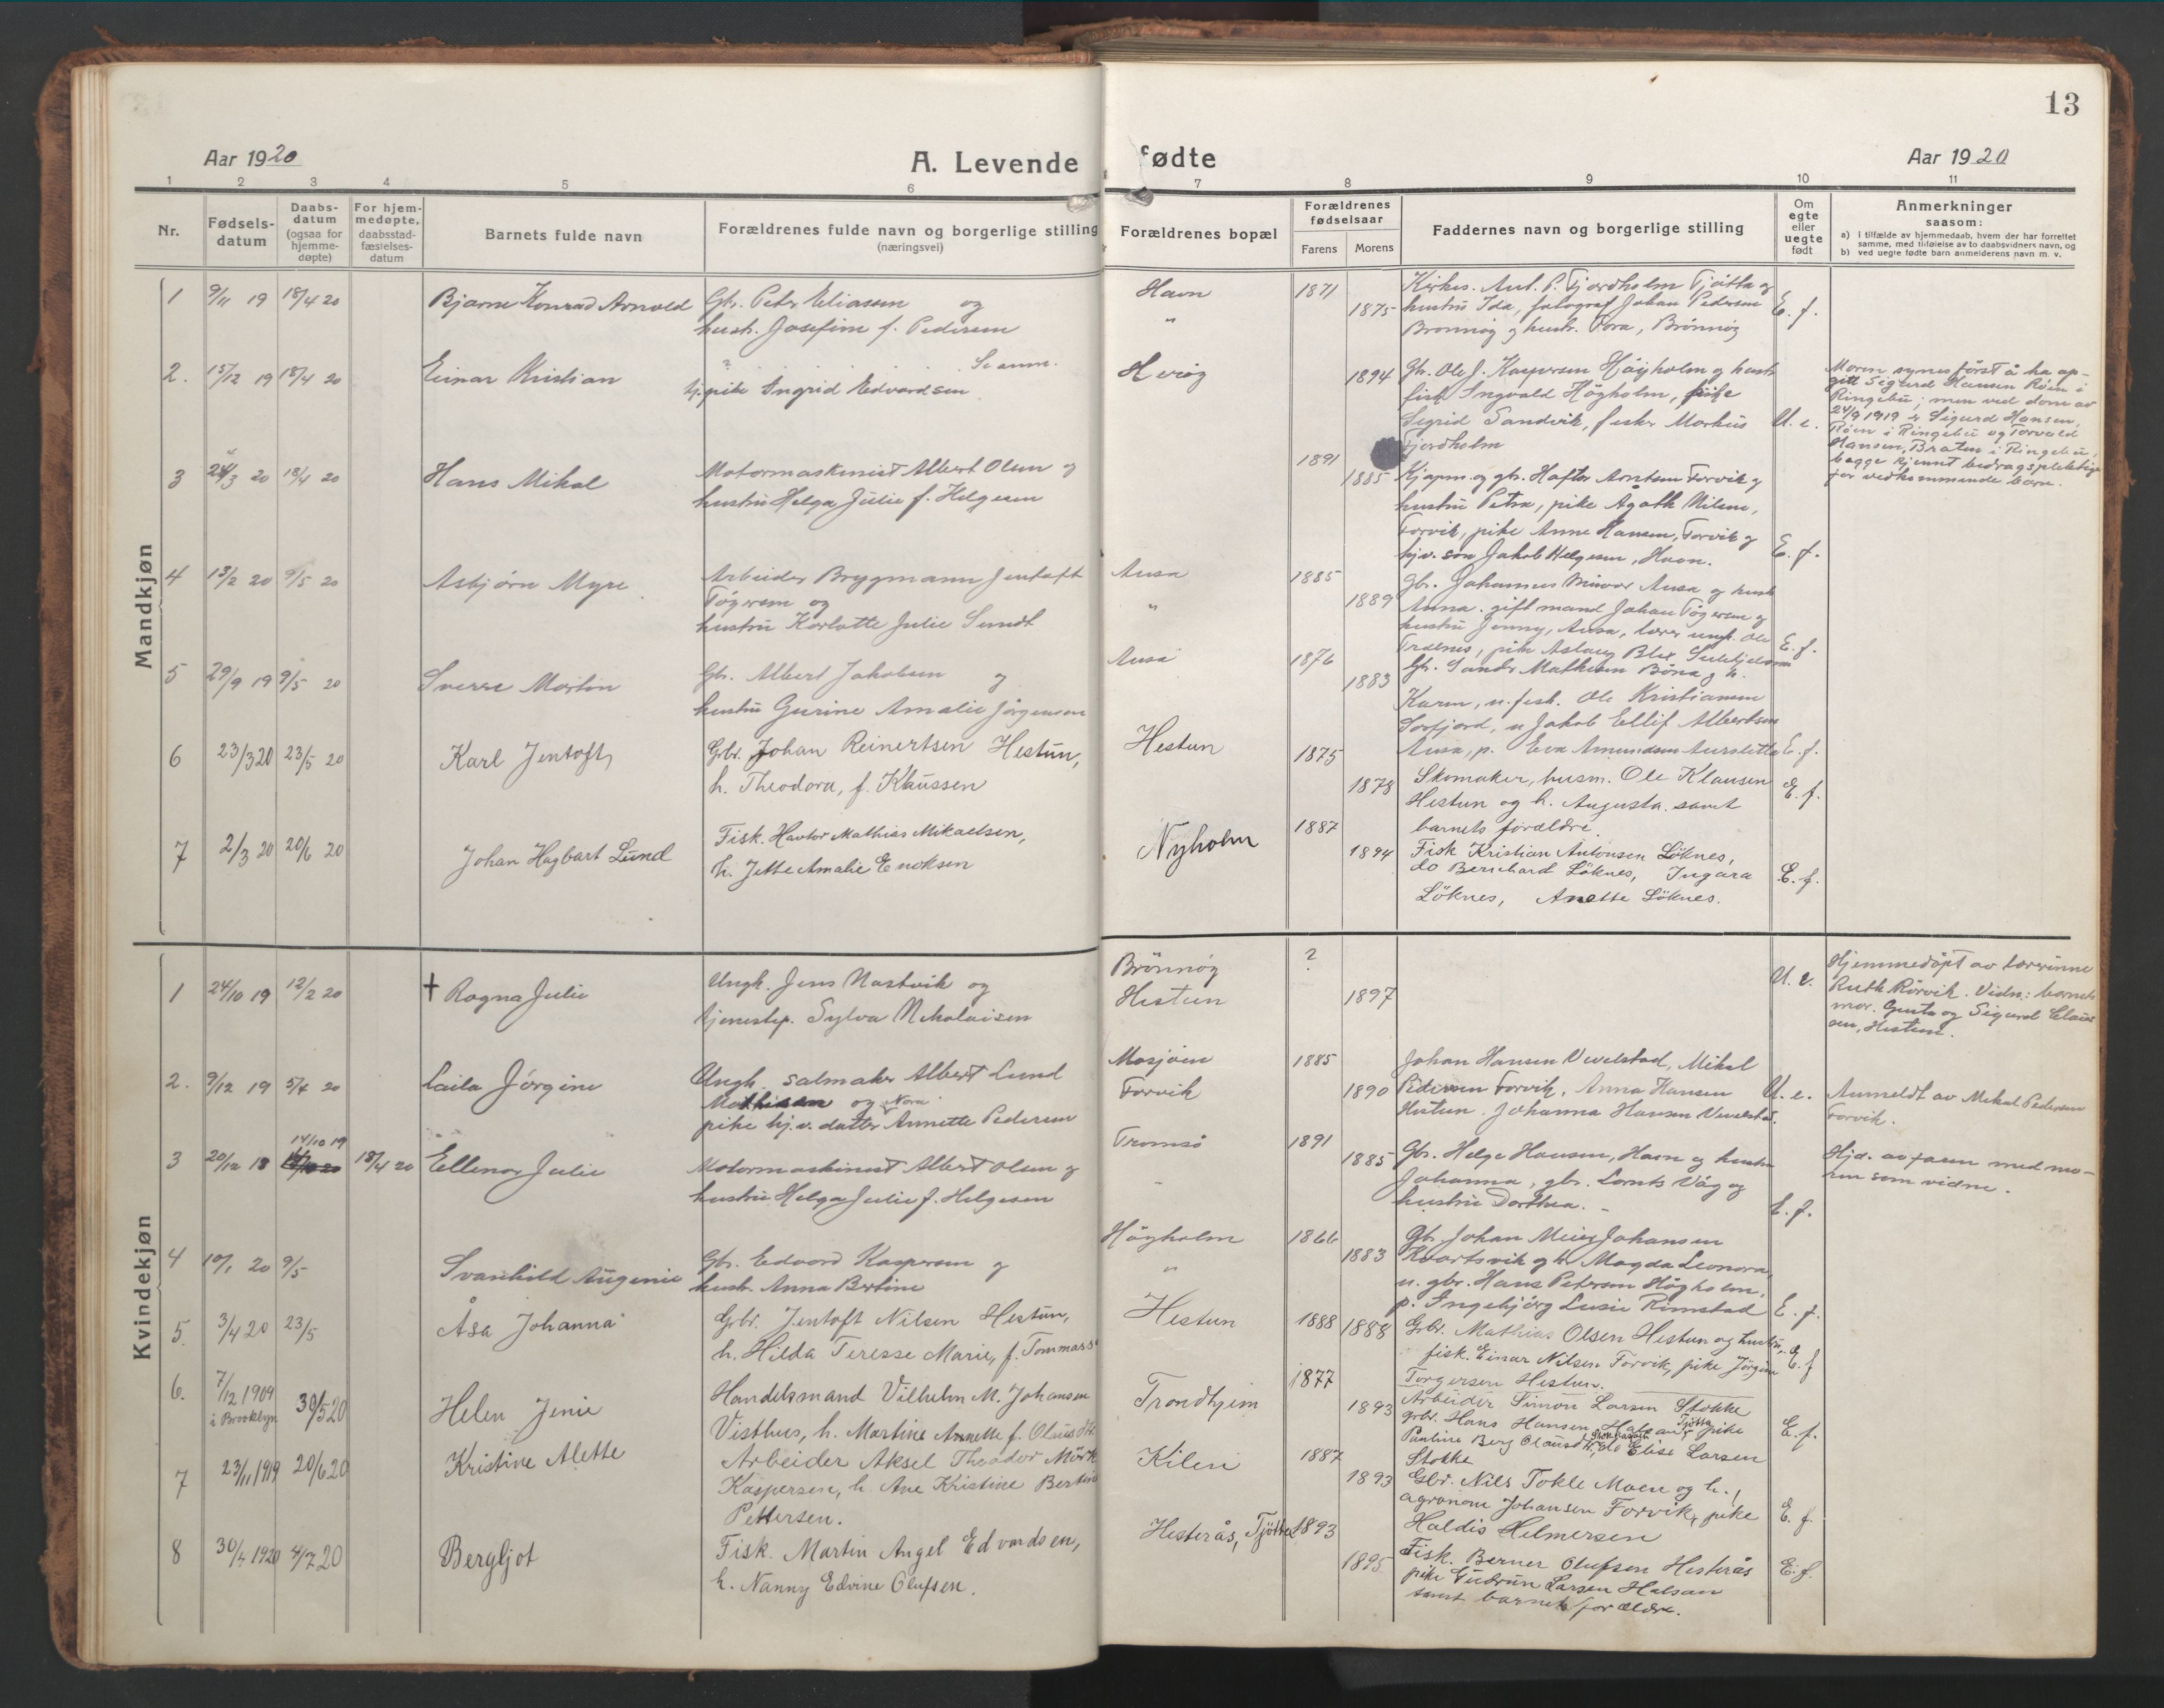 13
Aar 1920
A. Levende fødte
Aar 1920
1 2 3 4 5 6 7 8 9 10 11
Nr.
Fødsels-
datum
Daabs-
datum
(ogsaa for
hjemme-
døpte)
For hjem-
medøpte,
daabsstad-
fæstelses-
datum
Barnets fulde navn
Forældrenes fulde navn og borgerlige stilling
(næringsvei)
Forældrenes bopæl
Forældrenes
fødselsaar
Farens Morens
Faddernes navn og borgerlige stilling
Om
egte
eller
uegte
født
Anmerkninger
saasom:
a) i tilfælde av hjemmedaab, hvem der har forrettet
samme, med tilføielse av to daabsvidners navn, og
b) ved uegte fødte barn anmelderens navn m. v.
Mandkjøn
1 9/11 19 18/4 20 Bjarne Konrad Arnold
Gbr. Peter Eliassen og
hustr. Josefine f. Pedersen
Havn
"
1871
1875
Kirkes. Ant. P. Fjordholm Tjøtta og
hustru Ida, fotograf Johan Pedersen
Brønnøy og hustr. Tora, Brønnøy
E. f.
2. 15/12 19 18/4 20 Einar Kristian
?
tj. pike Ingrid Edvardsen
Herøy
1894
Gbr. Ole J. Kaspersen Høyholm og hustr.
fisk. Ingvald Høgholm, pike
Sigrid Sandvik, fisker Markus
Fjordholm
U. e.
Moren synes först å ha op-
gitt Sigurd Hansen Røen i
Ringebu; men ved dom av
24/9 1919 er Sigurd Hansen,
Røen i Ringebu og Torvald
Hansen, Braten i Ringebu,
begge kjennt bidragspliktige
for vedkommende barn.
3 24/3 20 18/4 20 Hans Mikal
Motormaskinist Albert Olsen og
hustru Helga Julie f. Helgesen
1891
1885
Kjøpm. og gbr. Haftor Arntsen Forvik og
hustru Petra, pike Agoth Nilsen,
Forvik, pike Anne Hansen, Forvik og
hj.v. søn Jakob Helgesen, Havn.
E. f.
4 13/2 20 9/5 20 Asbjørn Myre
Arbeider Brygmann Jentoft
Tøgersen og
hustru Karlotte Julie Sundt
Ausa
"
1885
1889
Gbr. Johannes Ausa og hustr.
Anna. gift mand Johan Tøgersen og
hustru Jenny, Ausa, lærer ungk. Ole
Trælnes, pike Aslaug Blix
E. f.
5 29/9 19 9/5 20 Sverre Morten
Gbr. Albert Jakobsen og
hustru Gurine Amalie Jørgensen
Ausa
1876
1883
Gbr. Sander Mathisen Bøna og h.
Karen, u. fisk. Ole Kristiansen
Sørfjord, u Jakob Ellif Albertsen
Ausa, p. Eva Amundsen
E. f.
6 23/3 20 23/5 20 Karl Jentoft
Gbr. Johan Reinertsen Hestun,
h. Theodora, f. Klaussen
Hestun
1875
1878
Skomaker, husm. Ole Klausen
Hestun og h. Augusta samt
barnets forældre.
E. f.
7 2/3 20 20/6 20 Johan Hagbart Lund
Fisk. Havtor Mathias Mikaelsen,
h. Jette Amalie Enoksen
Nyholm
1887
1894
Fisk Kristian Antonsen Löknes,
do Bernhard Löknes, Ingara
Löknes, Anette Löknes.
E. f.
Kvindekjøn
1 24/10 19 12/2 20 † Ragna Julie
Ungk. Jens Nastvik og
tjenestep. Sylva Nikolaisen
Brönnöy
Hestun
?
1897
U. e.
Hjemmedöpt av lærerinne
Ruth Rörvik. Vidn: barnets
mor. og Sigurd Claus
sen, Hestun.
2. 9/12 19 5/4 20 Laila Jørgine
Ungk. salmaker Albert Lund
Mathisen og Nora
pike hj.v. datter Annette Pedersen
Mosjøen
Forvik
1885
1890
Johan Hansen Vevelstad, Mikal
Pedersen Forvik, Anna Hansen
Hestun. Johanna Hansen Vevelstad.
U. e.
Anmeldt av Mikal Pedersen
Forvik.
3 20/12 18 14/10 19 18/4 20 Ellenor Julie
Motormaskinist Albert Olsen og
hustru Helga Julie f. Helgesen
Tromsø
"
1891
1885
Gbr. Helge Hansen, Havn og hustru
Johanna, gbr. Lornts Våg og
hustru Dorthea.
E. f.
Hjd. av faren med mo-
ren som vidne.
4 10/1 20 9/5 Svanhild Augenie
Gbr. Edvard Kaspersen og
hustr. Anna Bertine
Høyholm
"
1866
1883
Gbr. Johan Meier Johansen
Kvartsvik og h. Magda Leonora,
u. gbr. Hans Petersen Høgholm,
p. Ingebjørg Lusie Rimstad
E. f.
5. 3/4 20 23/5 Åsa Johanna
Gbr. Jentoft Nilsen Hestun,
h. Hilda Teresse Marie, f. Tommass
Hestun
1888
1888
Gbr. Mathias Olsen Hestun og hustru,
fisk. Einar Nilsen Forvik, pike Jörgine
Torgersen Hestun.
E. f
6. 7/12 1909
i Brooklyn
30/5 20 Helen Jenie
Handelsmand Vilhelm M. Johansen
Visthus, h. Martine Annette f. Olausdtr.
Trondhjem
1877
1893
Arbeider Simon Larsen Stokke
gbr. Hans Hansen, Halsan, Tjøtta pike
Pauline Berg Olausdtr, do Elise Larsen
Stokke
E. f.
7 23/11 1919 20/6 20 Kristine Alette
Arbeider Aksel Theodor Mörk
Kaspersen, h. Ane Kristine Bertine
Pettersen.
Kilen
1887
1893
Gbr. Nils Tokle Moen og h.,
agronom Johansen Forvik, pike
Haldis Helmersen
E. f.
8 30/4 1920 4/7 20 Bergljot
Fisk. Martin Angel Edvardsen,
h. Nanny Edvine Olufsen.
Hesterås, Tjötta
1893
1895
Fisk. Berner Olufsen Hesterås
pike Gudrun Larsen Halsan
samt barnets forældre.
E. f.